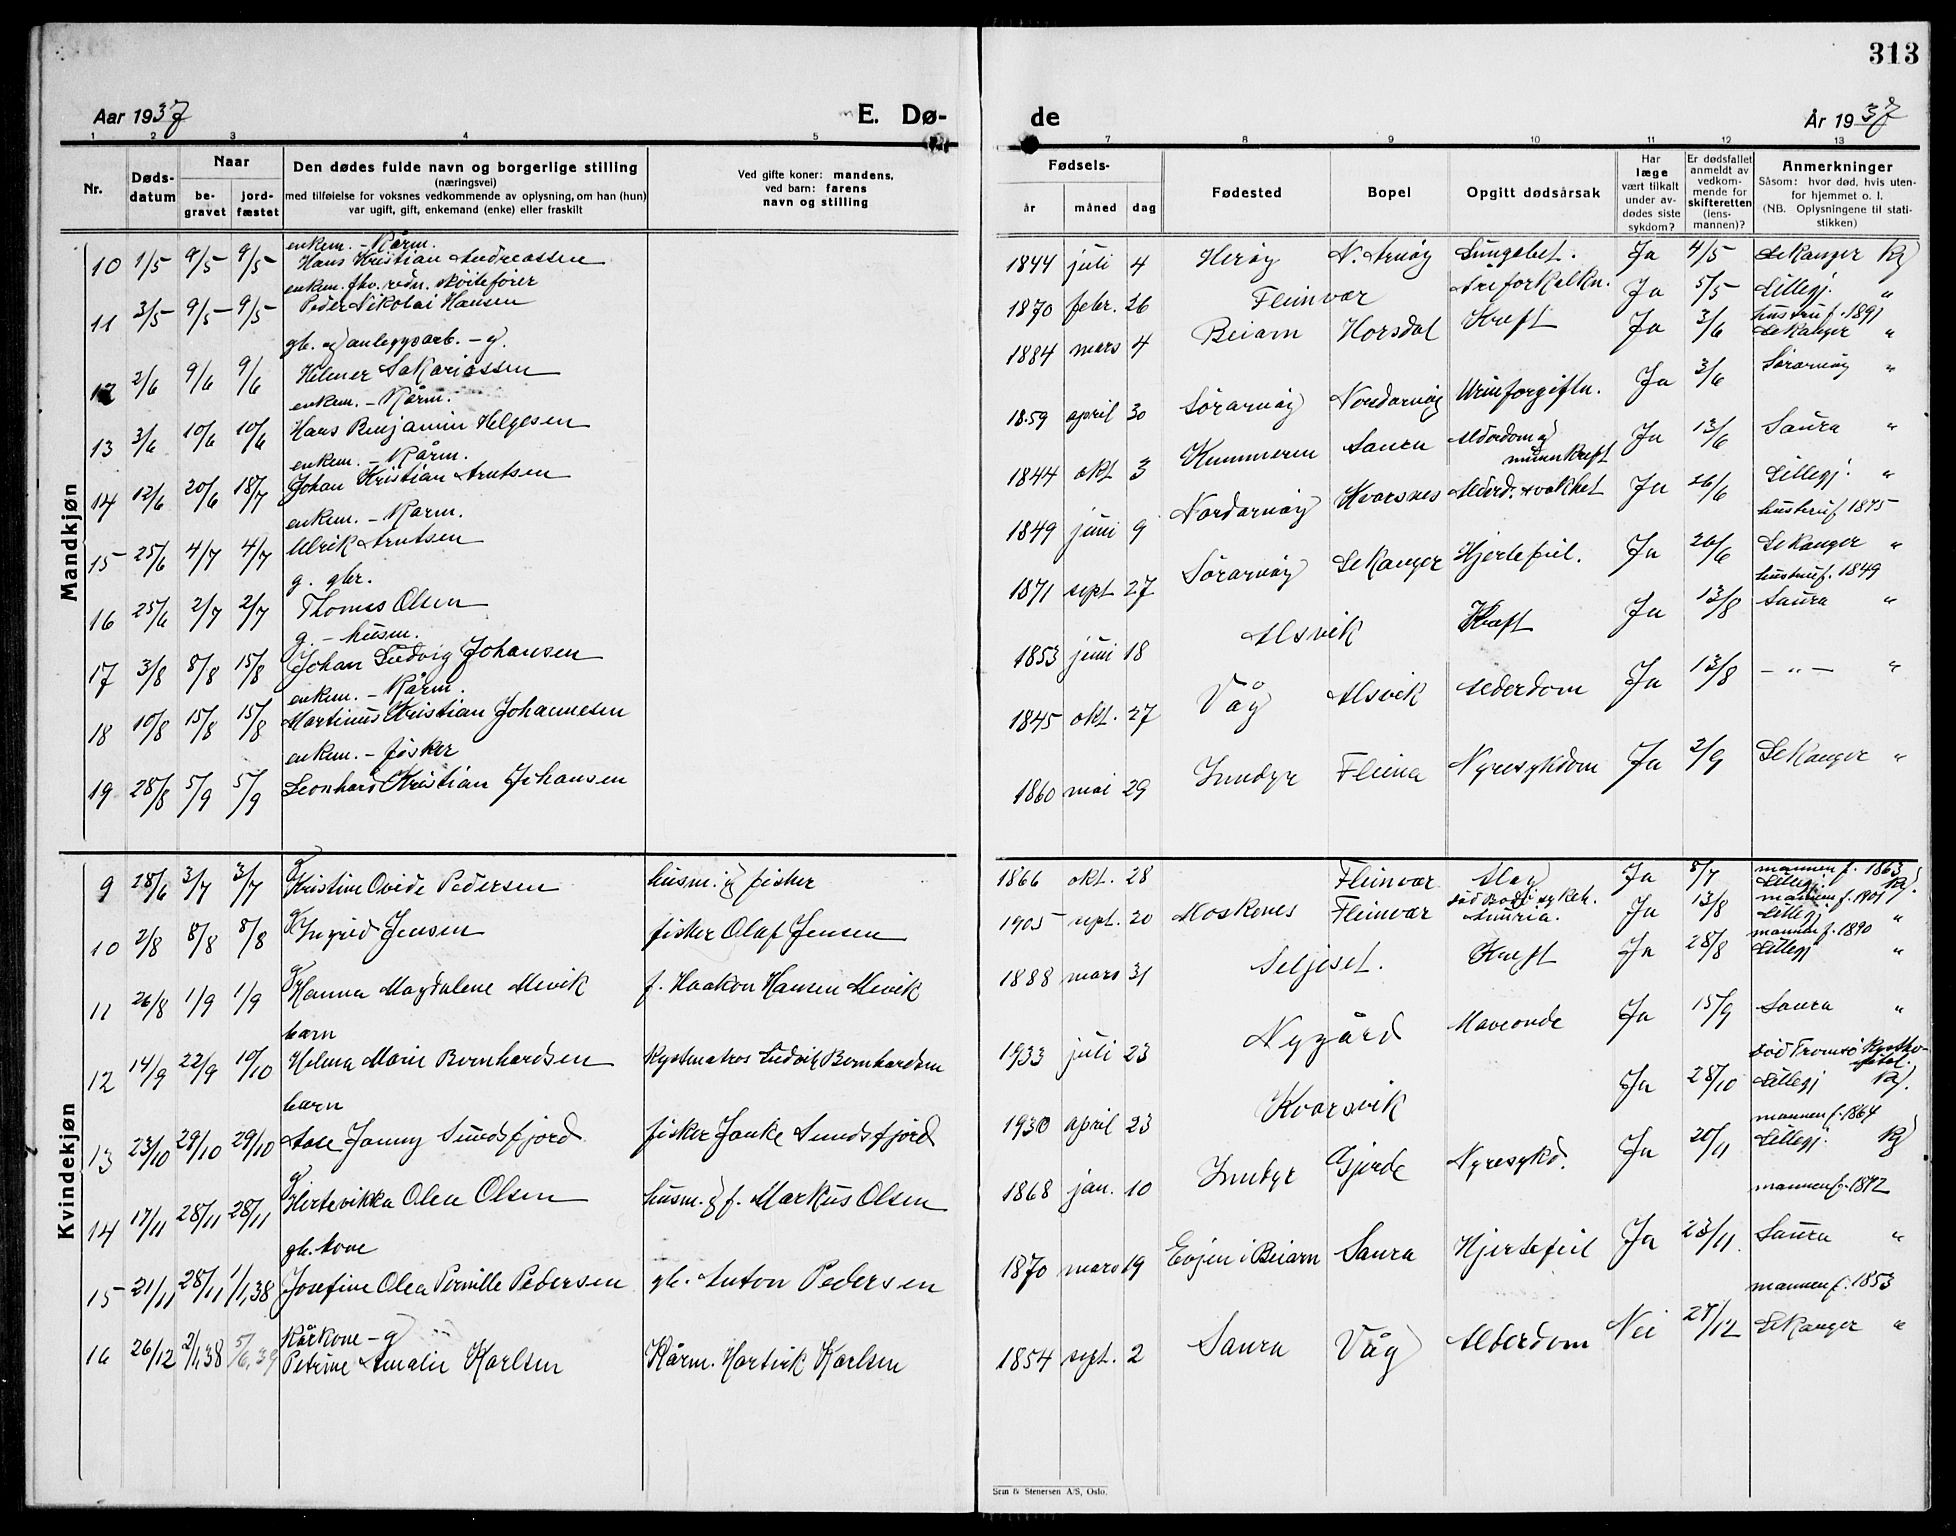 313
Aar 1937
E. Dø-
de
År 1937
1 2 3 4 5
7 8 9 10 11 12 13
Nr.
Døds-
datum
Naar
be-
gravet
jord-
fæstet
Den dødes fulde navn og borgerlige stilling
(næringsvei)
med tilføielse for voksnes vedkommende av oplysning, om han (hun)
var ugift, gift, enkemand (enke) eller fraskilt
Ved gifte koner: mandens,
ved barn: farens
navn og stilling
Fødsels-
år måned dag
Fødested
Bopel
Opgitt dødsårsak
Har
læge
vært tilkalt
under av-
dødes siste
sykdom?
Er dødsfallet
anmeldt av
vedkom-
mende for
skifteretten
(lens-
mannen)?
Anmerkninger
Såsom: hvor død, hvis uten-
for hjemmet o. l.
(NB. Oplysningene til stati-
stikken)
Mandkjøn
enkem. - Kårm.
10 1/5 9/5 9/5 Hans Kristian Andreassen 1844 juli 4 Herøy N. Arnøy Lungebet. Ja 4/5 Lekanger Kg
enkem. fhv. redn. skøitefører
11 3/5 9/5 9/5 Peder Nikolai Hansen 1870 febr. 26 Fleinvær Ja 5/5 Lillegj. "
hustru f. 1891
gb. og anleggsarb. - g.
12 2/6 9/6 9/6 Helmer Sakariassen 1884 mars 4 Beiarn Horsdal Kreft Ja 3/6 Lekanger "
enkem. - Kårm.
13 3/6 10/6 10/6 Hans Benjamin Helgesen 1859 april 30 Sørarnøy Nordarnøy Urinforgiftn. Ja 3/6 Sørarnøy "
enkem. - Kårm.
14 12/6 20/6 18/7 Johan Kristian Arntsen 1844 okt 3 Saura Alderdom og
munnkreft Ja 13/6 Saura "
enkem. - Kårm.
15 25/6 4/7 4/7 Ulrik Arntsen 1849 juni 9 Nordarnøy Kvarsnes Alderd. svakhet Ja 26/6 Lillegj. "
hustru f 1875
g. gbr.
16 25/6 2/7 2/7 Thomas Olsen 1871 sept 27 Sørarnøy Lekanger Hjertefeil. Ja 26/6 Lekanger "
hustru f. 1849
g. - husm.
17 3/8 8/8 15/8 Johan Ludvig Johansen 1853 juni 18 Alsvik Kreft Ja 13/8 Saura "
enkem. - Kårm.
18 10/8 15/8 15/8 Martinus Kristian Johannesen 1845 okt. 27 Våg Alsvik Alderdom Ja 13/8 - " - "
enkem. - fisker
19 28/8 5/9 5/9 Leonhard Kristian Johansen 1860 mai 29 Inndyr Fleina Nyresykdom Ja 2/9 Lekanger "
Kvindekjøn
mannen f. 1863
g
9 28/6 3/7 3/7 Kristine Ovide Pedersen husm. og fisker 1866 okt. 28 Fleinvær Slag Ja 8/7 Lillegj. Kg.
g
10 2/8 8/8 8/8 Ingrid Jensen fisker Olaf Jensen 1905 sept. 20 Moskenes Fleinvær Ja 13/8 Lillegj "
mannen f. 1890
g
11 26/8 1/9 1/9 Hanna Magdalene Mevik f. Haakon Hansen Mevik 1888 mars 31 Seljeset. Kreft Ja 28/8 Lillegj "
barn
12 14/9 22/9 10/10 Helena Marie Bernhardsen Kystmatros Ludvik Bernhardsen 1933 juli 23 Nygård Maveonde Ja 15/9 Saura "
død Tromsø Kystho-
spital.
barn
13 23/10 29/10 29/10 Aase Janny Sundsfjord fisker Janke Sundsfjord 1930 april 23 Kvarsvik Ja 28/10 Lillegj Kg.
mannen f. 1864
g
14 17/11 28/11 28/11 Hertevikka Olea Olsen husm. og f. Markus Olsen 1868 jan. 10 Inndyr Gjerde Nyresykd. Ja 20/11 Lillegj. Kg
mannen f. 1872
gb. kone
15 21/11 28/11 1/1,38 Josefine Olea Pernille Pedersen gb. Anton Pedersen 1870 mars 19 Evjen i Beiarn Saura Hjertefeil Ja 23/11. Saura "
mannen f. 1853
Kårkone - g
16 26/12 2/1,38 5/6,39 Petrine Amalie Karlsen Kårm. Hartvik Karlsen 1854 sept. 2 Saura Våg Alderdom Nei 27/12 Lekanger "
& Stenersen A/S, Oslo.